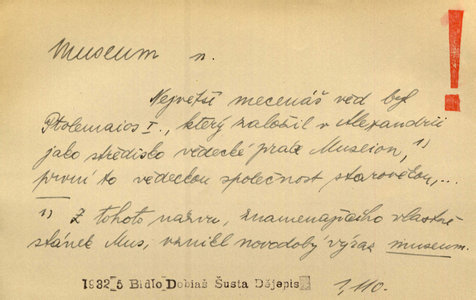 Museum n.
!
Největší mecenáš věd byl
Ptolemaios I., který založil v Alexandrii
jako středisko vědecké práce Museion, 1)
první to vědeckou společnost starověkou,...
1) Z tohoto názvu, znamenajícího vlastně
stánek Mus, vznikl novodobý výraz museum.
1932_5 Bidlo Dobiáš Šusta Dějepis
1, 110.